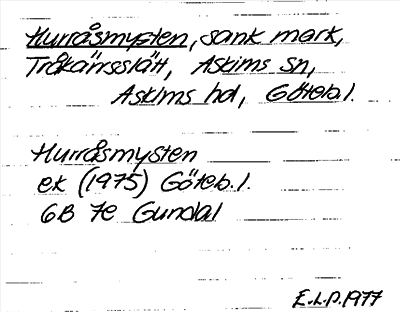 Hurråsmysten, sank mark,
Tråkärrsslätt, Askims sn,
Askims hd, Göteb.l.
Hurråsmysten
ek (1975) Göteb.l.
6B 7e Gundal
E.L.P. 1977